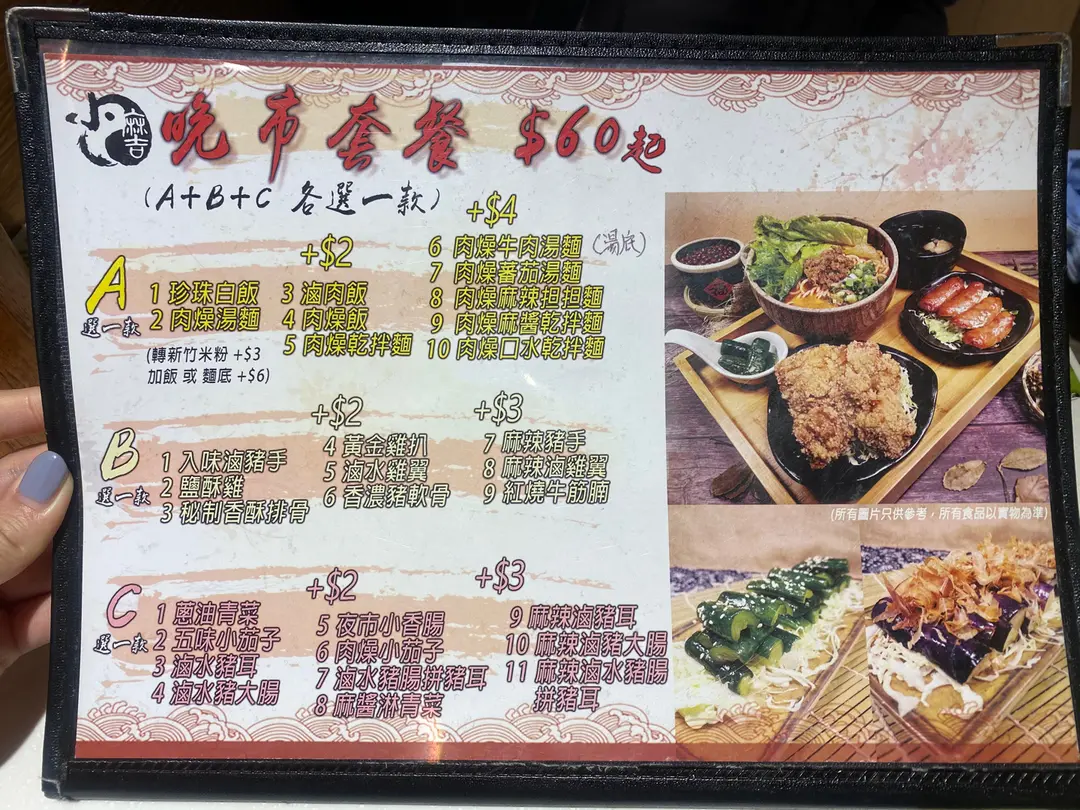 小麻吉
晚市套餐 $60起
(A+B+C 各選一款)
A
選一款
1 珍珠白飯
2 肉燥湯麵
(轉新竹米粉 +$3
加飯 或 麵底 +$6)
+$2
3 滷肉飯
4 肉燥飯
5 肉燥乾拌麵
+$4
6 肉燥牛肉湯麵 (湯底)
7 肉燥蕃茄湯麵
8 肉燥麻辣担担麵
9 肉燥麻醬乾拌麵
10 肉燥口水乾拌麵
B
選一款
1 入味滷豬手
2 鹽酥雞
3 秘制香酥排骨
+$2
4 黃金雞扒
5 滷水雞翼
6 香濃豬軟骨
+$3
7 麻辣豬手
8 麻辣滷雞翼
9 紅燒牛筋腩
C
選一款
1 蔥油青菜
2 五味小茄子
3 滷水豬耳
4 滷水豬大腸
+$2
5 夜市小香腸
6 肉燥小茄子
7 滷水豬腸拼豬耳
8 麻醬淋青菜
+$3
9 麻辣滷豬耳
10 麻辣滷豬大腸
11 麻辣滷水豬腸
拼豬耳
(所有圖片只供參考，所有食品以實物為準)